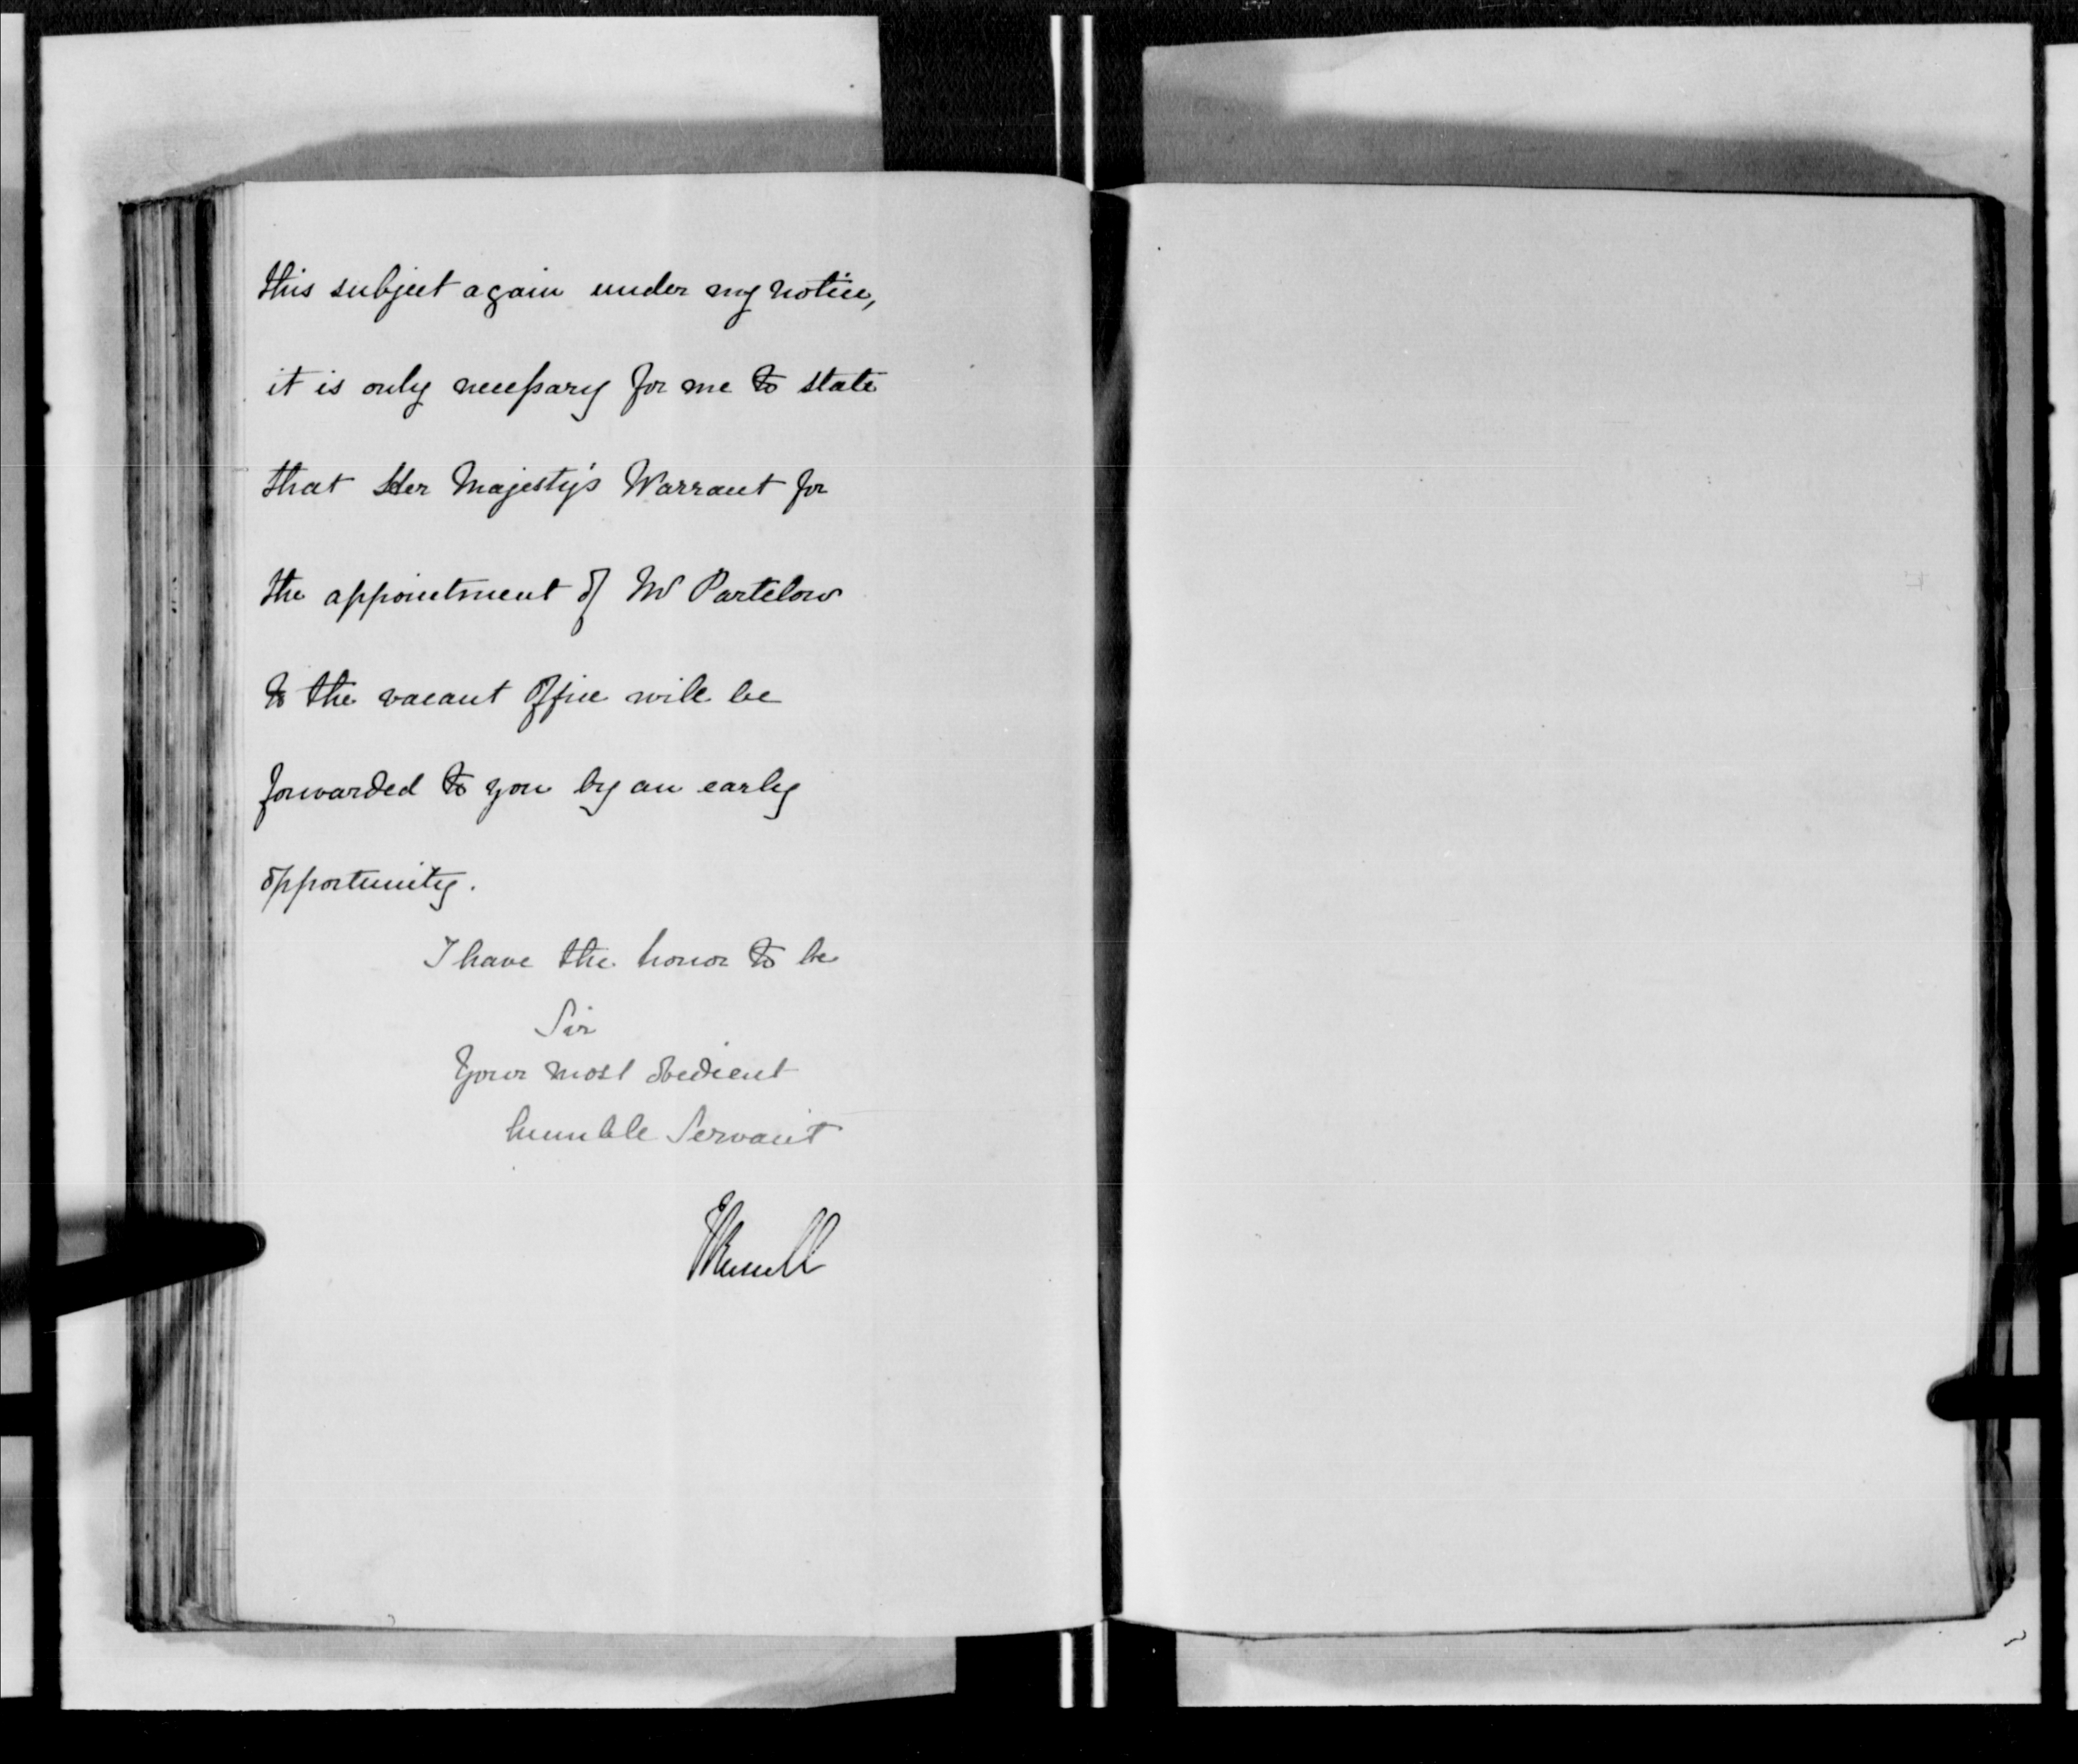 this subject again under my notice,
it is only necessary for me to state
that Her Majesty's Warrant for
the appointment of Mr Partelow
to the vacant Office will be
forwarded to you by an early
opportunity.
I have the honor to be
Sir
Your most obedient
humble Servant
JRussell